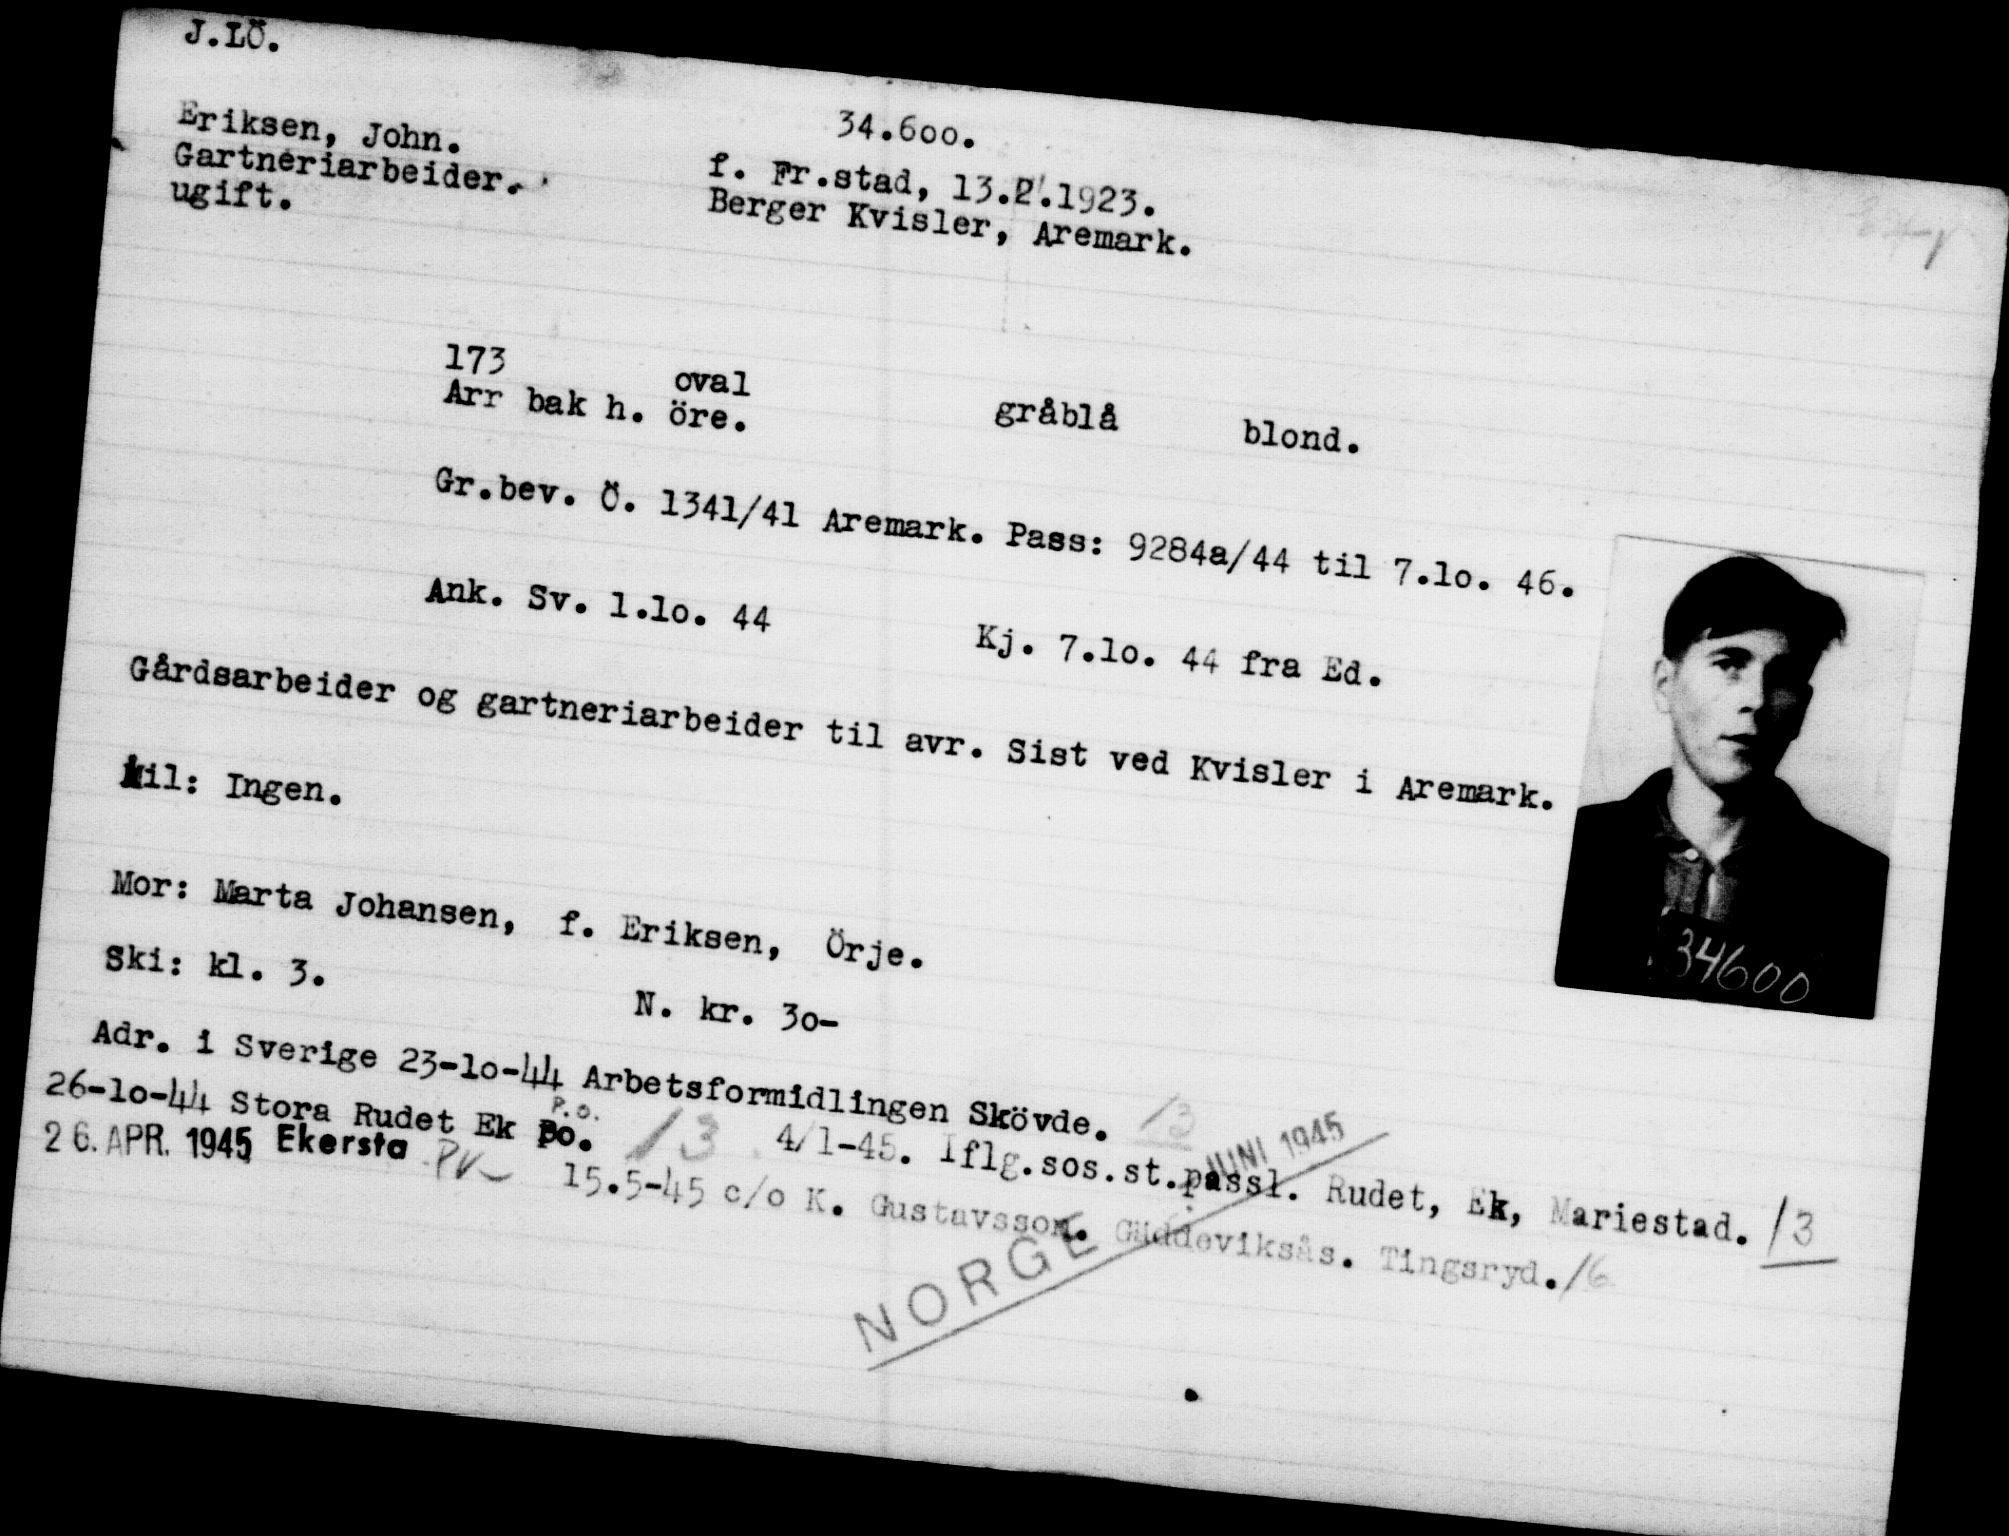 J.LÖ.
34.6oo.
Eriksen, John.
f. Fr.stad, 13.2.1923.
Gartneriarbeider.
Berger Kvisler, Aremark.
ugift.
173 oval gråblå blond.
Arr bak h. öre.
Gr.bev. Ö. 1341/41 Aremark. Pass: 9284a/44 til 7.lo. 46.
Ank. Sv. l.lo. 44 Kj. 7.lo. 44 fra Ed.
Gårdsarbeider og gartneriarbeider til avr. Sist ved Kvisler i Aremark.
Mil: Ingen.
Mor: Marta Johansen, f. Eriksen, Örje.
Ski: kl. 3. N. kr. 3o-
34600
Adr. i Sverige 23-lo-44 Arbetsformidlingen Skövde. 13
26-lo-44 Stora Rudet Ek Po. P.o. 13 4/1-45. Iflg.sos.st.passl. Rudet, Ek, Mariestad. /3
26. APR. 1945 Ekersta 15.5-45 c/o K. Gustavsson. Gäddeviksås. Tingsryd. /6
JUNI 1945
NORGE